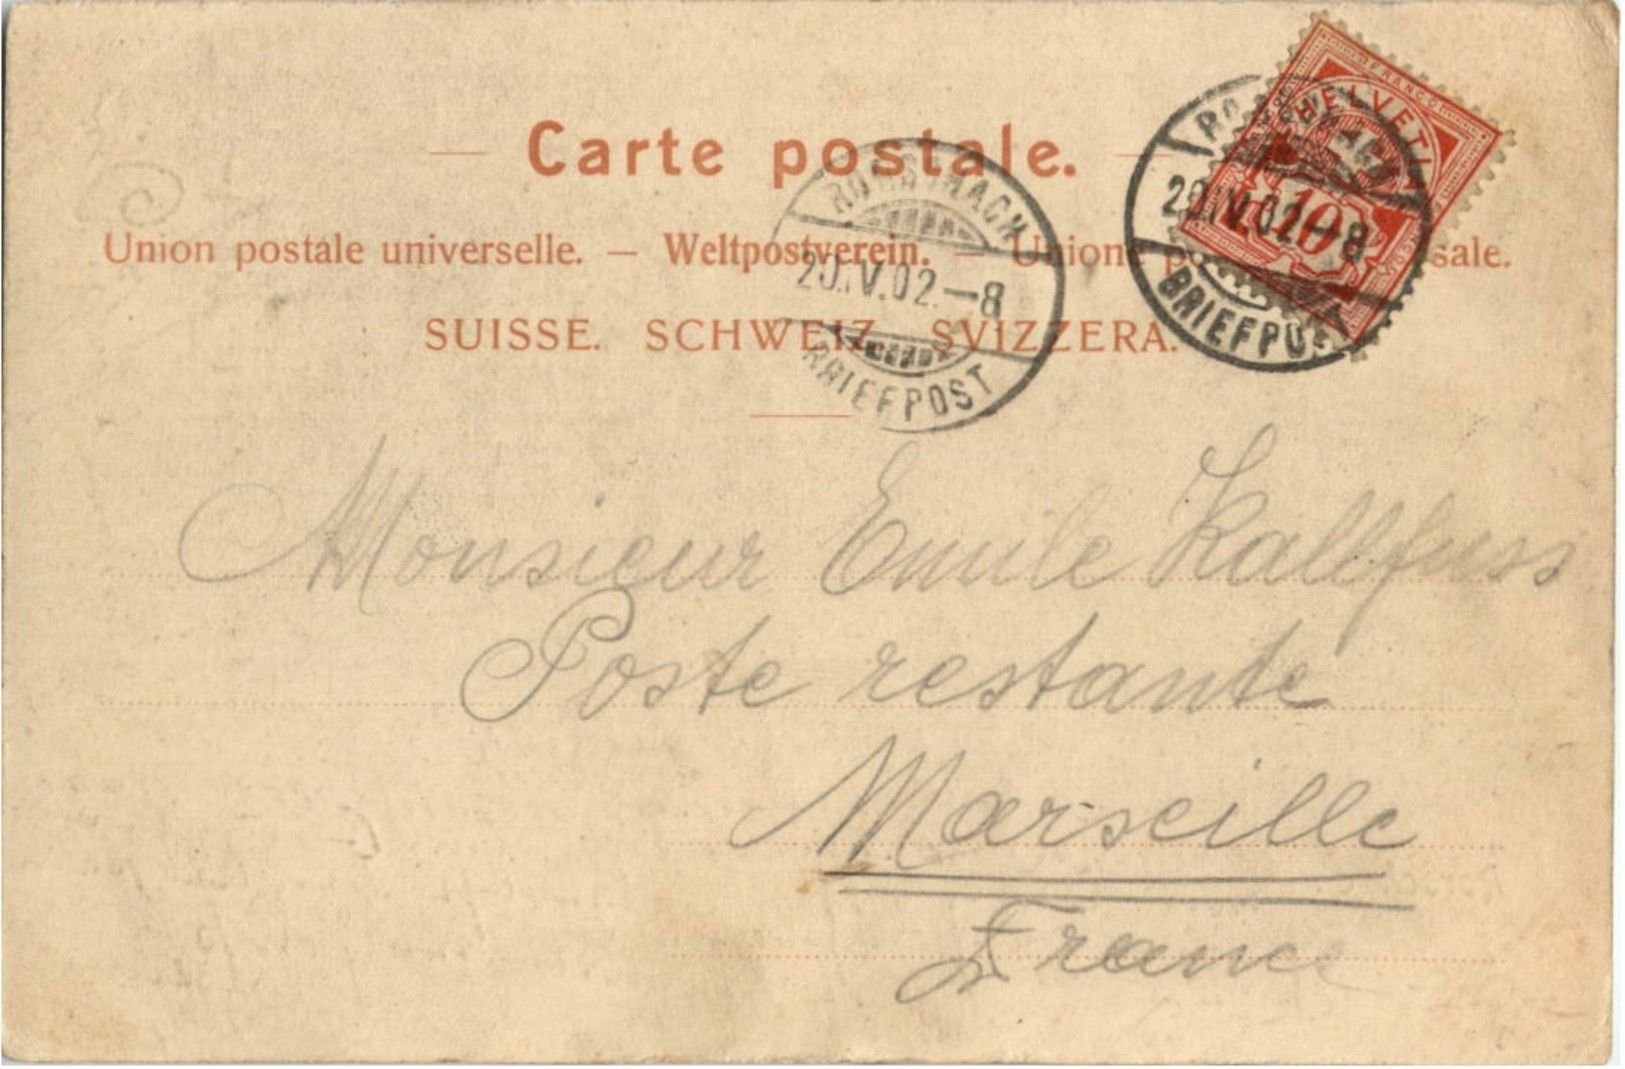 Carte postale.
Union postale universelle. — Weltpostverein. — Unione sale.
SUISSE. SCHWEIZ. SVIZZERA.
RORSCHACH
20.IV.02.—8
BRIEFPOST
HELVETIA
10
RORSCHACH
20.IV.02.—8
BRIEFPOST
Monsieur Emile Kallfuss
Poste restante
Marseille
France